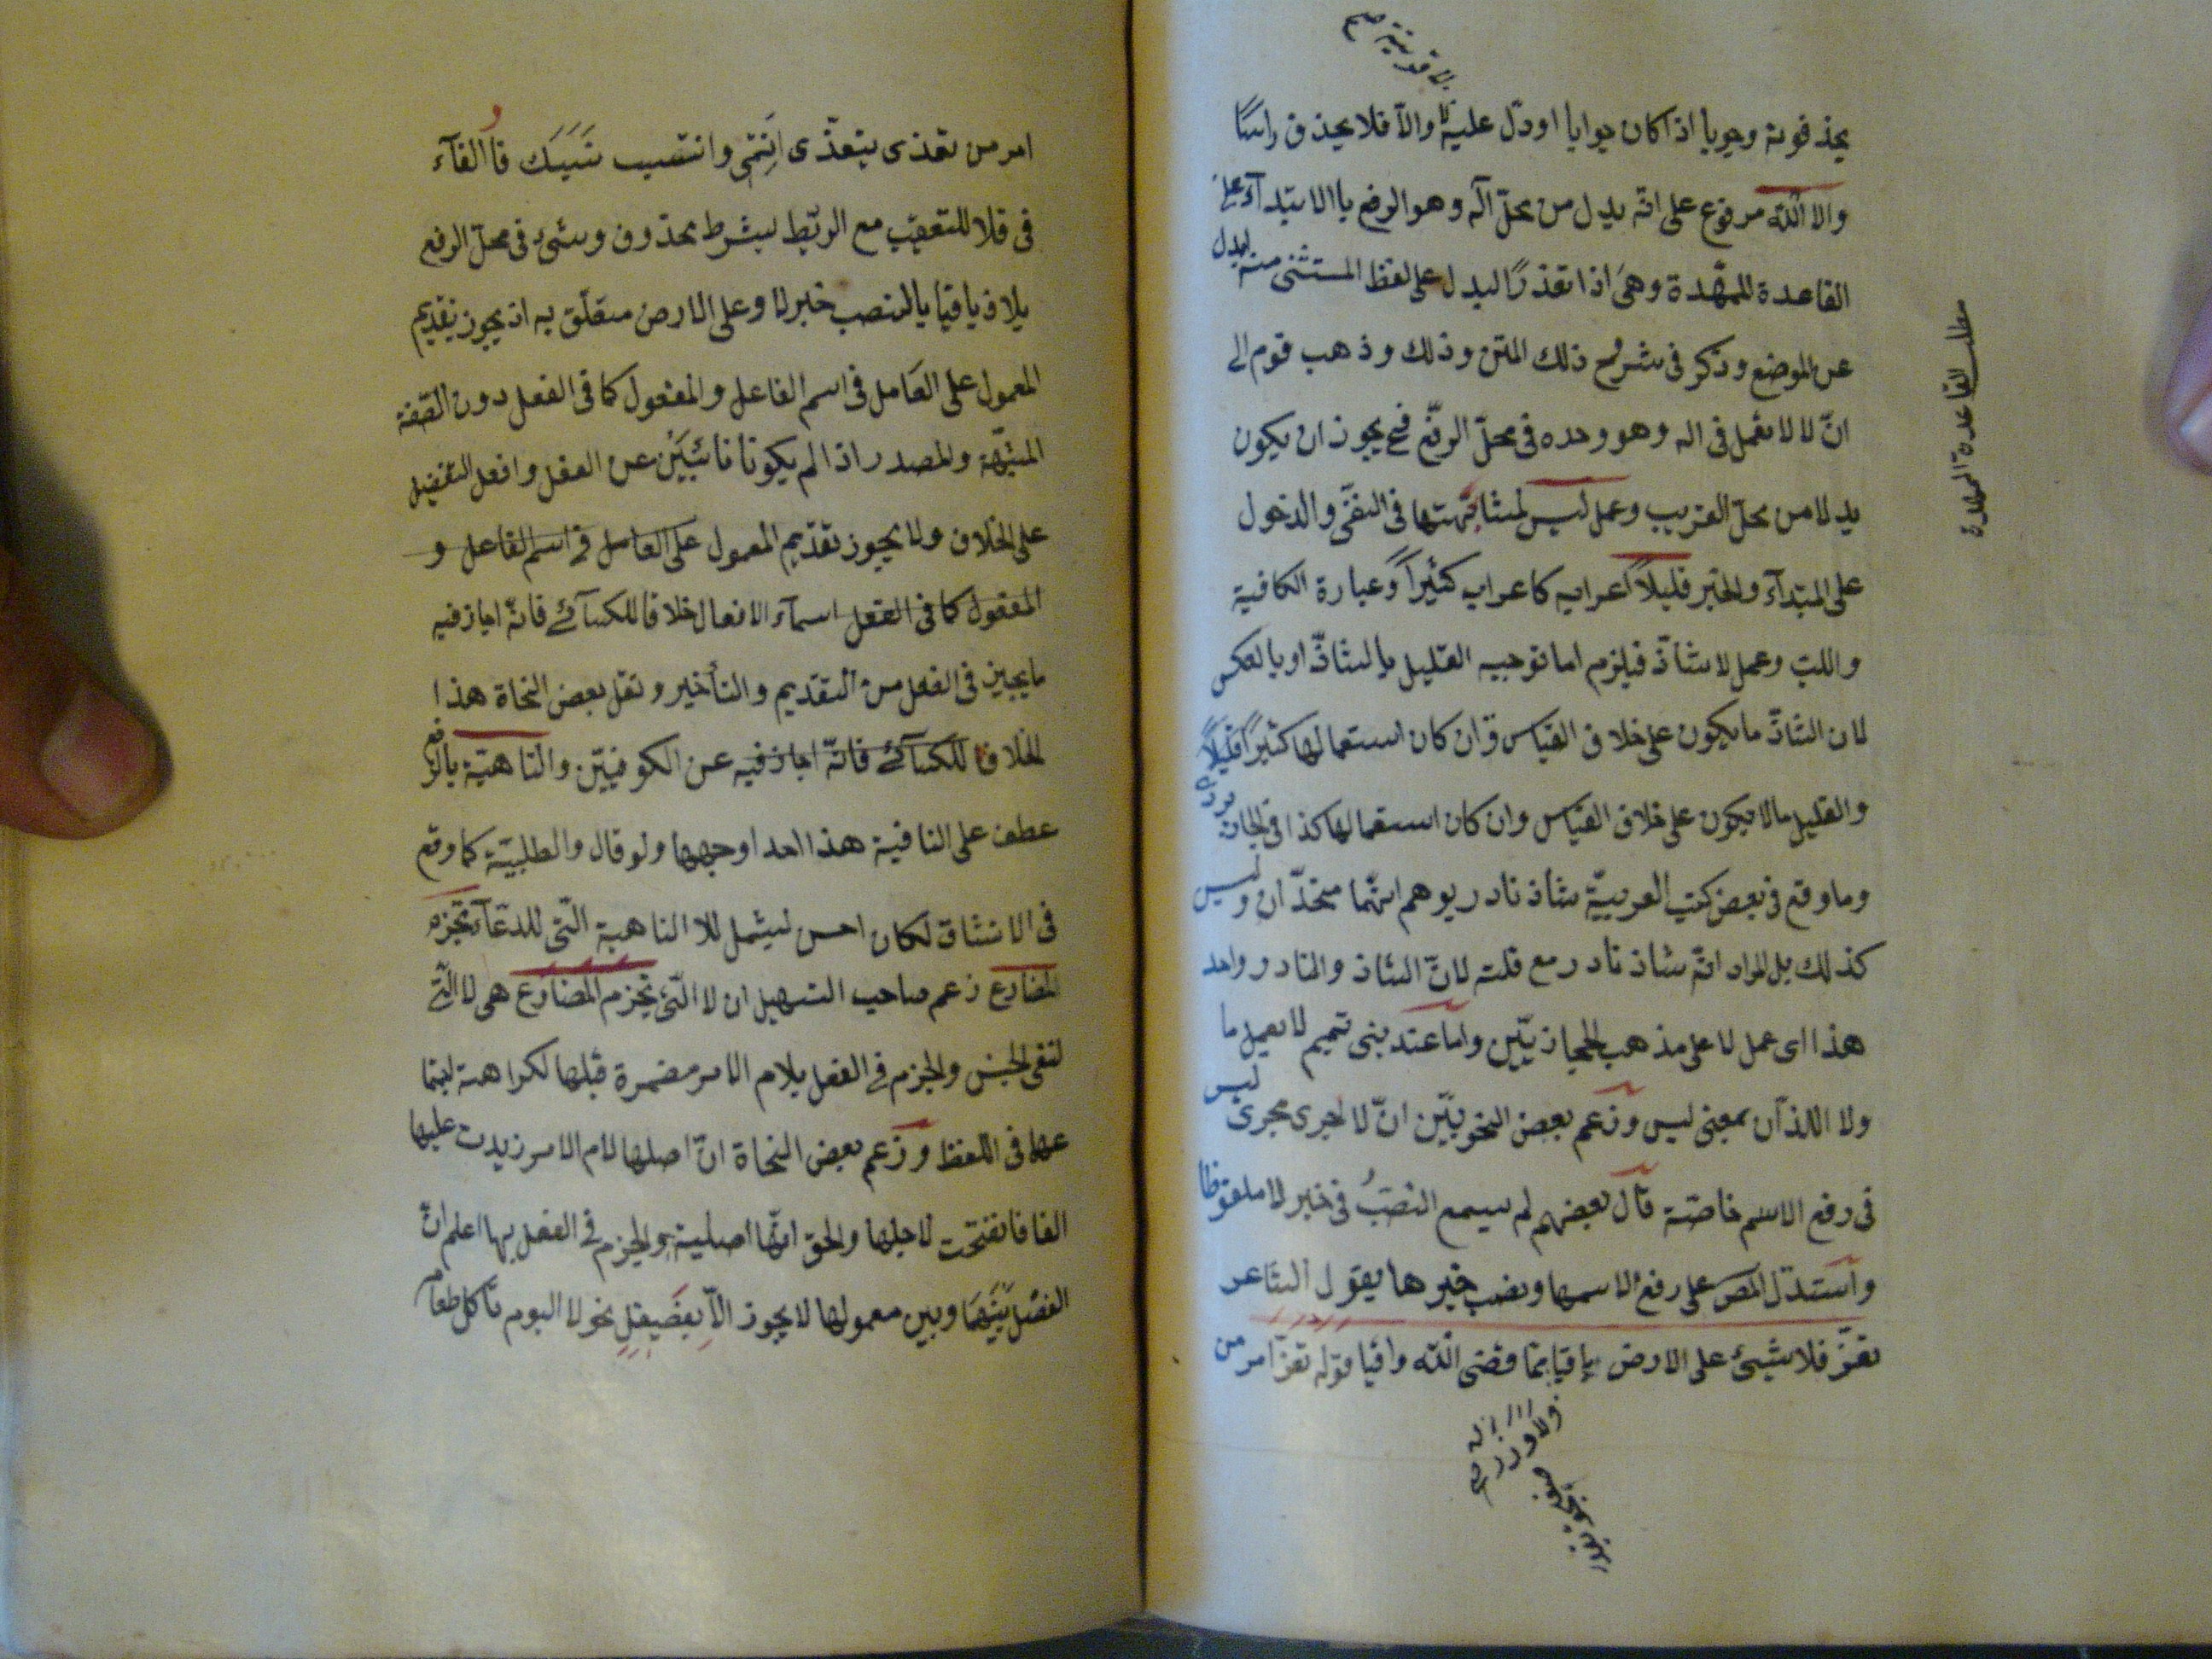 بلا قرينة صح
يحذفونه وجوبا اذا كان جوابا او دل عليه والا فلا يحذف راسا
والا الله مرفوع على انه بدل من محل اله وهو الرفع بالابتداء على
القاعدة الممهدة وهى اذا تعذر البدل على لفظ المستثنى منه ابدل
عن الموضع وذكر فى شرح ذلك المتن وذلك وذهب قوم الى
انّ لا لا تعمل فى اله وهو وحده فى محلّ الرفع فح يجوز ان يكون
بدلا من محلّ القريب وعمل ليس لمشابهتها فى النفى والدخول
على المبتدأ والخبر قليلاً اعرابه كاعراب كثيراً وعبارة الكافية
واللب وعمل لا شاذّ فيلزم اما توجيه القليل بالشاذّ او بالعكس
لان الشاذّ ما يكون على خلاف القياس وان كان استعمالها كثيراً قليلاً
والقليل ما لا يكون على خلاف القياس وان كان استعمالها كذا فى
وما وقع فى بعض كتب العربيّة شاذ نادر يوهم انّهما متحدّان وليس
كذلك بل المراد انّه شاذ نادر مع قلته لانّ الشاذ والنادر واحد
هذا اى عمل لا على مذهب الحجازيّين واما عند بنى تميم لا يعمل ما
ولا اللذان بمعنى ليس وزعم بعض النحويّين انّ لا اجرى مجرى ليس
فى رفع الاسم خاصّة قال بعضهم لم يسمع النصب فى خبر لا ملفوظا
واستدلّ المص على رفع لا اسمها ونصب خبرها بقول الشاعر
تعزّ فلا شىء على الارض باقيا بمّا قضى الله واقيا قوله تعزّ امر من
ولا وزر
مطلب القاعدة الممهدة
امر من تعذى يتعذّى انتمى وانتصب فا الفآء
فى فلا للتعقيب مع الربط لشرط محذوف وشىء فى محلّ الرفع
بلا وباقيا بالنصب خبر لا وعلى الارض متعلّق به اذ يجوز تقديم
المعمول على العامل فى اسم الفاعل والمفعول كما فى الفعل دون الصّفة
المشبّهة والمصدر اذا لم يكونا نائبين عن الفعل وافعل التفضيل
على الخلاف ولا يجوز تقديم المعمول على العامل فى اسم الفاعل و
المفعول كما فى الفعل اسمآء الافعال خلافا للكسآئى فانّه اجاز فيه
ما يجيز فى الفعل من التقديم والتأخير ونقل بعض النحاة هذا
الخلاف للكسآئى فانّه اجاز فيه عن الكوفيّين والناهيّة بالرفع
عطف على النافية هذا احد اوجهها ولو قال والطلبيّة كما وقع
فى الانشاق لكان احسن ليشمل للا الناهية التى للدعآء تجزم
المضارع زعم صاحب التسهيل ان لا التى تجزم المضارع هى لا التى
لنفى الجنس والجزم فى الفعل بلام الامر مضمرة قبلها لكراهة
فى اللفظ وزعم بعض النحاة انّ اصلها لام الامر زيدت عليها
الفا فانفتحت لاجلها والحق انّها اصلية والجزم فى الفعل بها اعلم انّ
الفصل بينهما وبين معمولها لا يجوز الاّ نحو لا اليوم تأكل طعام